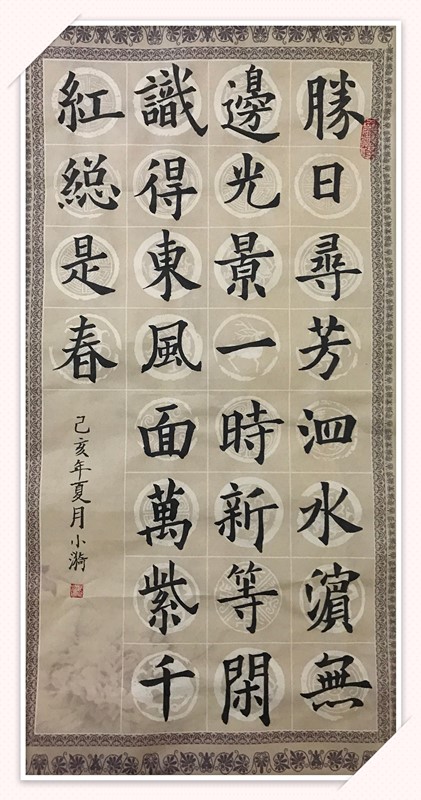 勝日尋芳泗水濵無
邊光景一時新等閑
識得東風面萬紫千
紅縂是春
己亥年夏月小漪